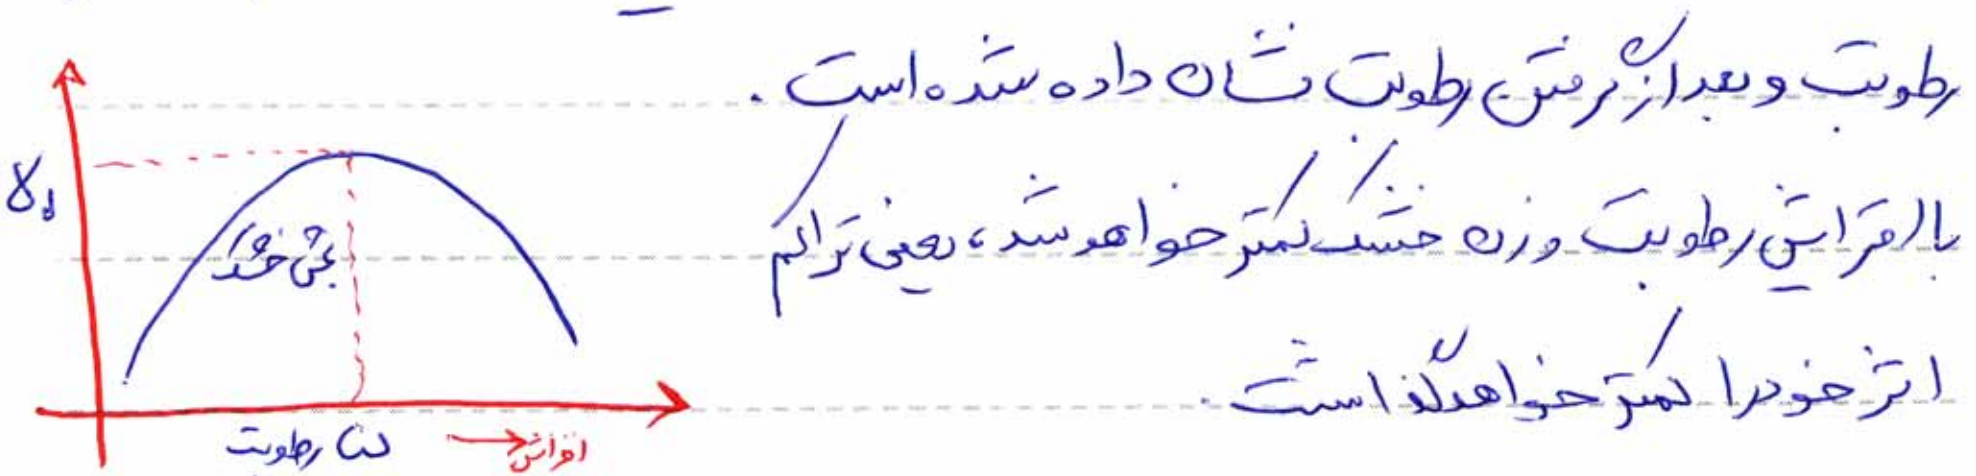 رطوبت و بعد از گرفتن رطوبت نشان داده شده است.
با افزایش رطوبت وزن خشک کمتر خواهد شد، یعنی تراکم
اثر خود را کمتر خواهد گذاشت.
γd
بخش
رطوبت
افزایش